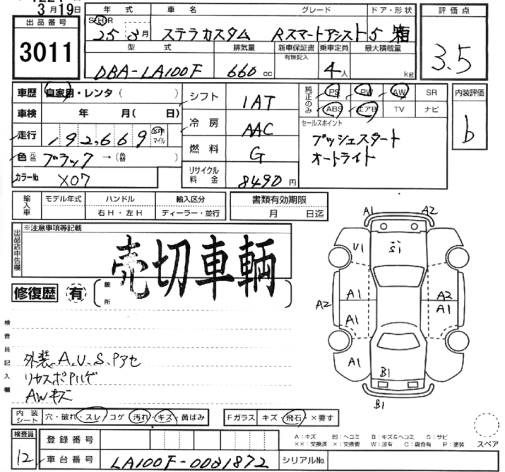 3月19日
出品番号 3011
車名 グレード ドア・形状 評価点
25年3月 ステラカスタム Rスマートアシスト 5 箱 3.5
型式 排気量 新車保証書 有無記入 乗車定員 最大積載量
DBA-LA100F 660cc 4人 kg
車歴 自家用・レンタ・( ) シフト 1AT 純正のみ PS PW AW SR 内装評価
車検 年 月( 日) ABS エアB TV ナビ b
走行 192,669 km マイル 冷房 AAC セールスポイント
プッシュスタート
オートライト
色 ブラック→( ) 燃料 G
カラーNo X07 リサイクル料金 8490円
輸入車 モデル年式 ハンドル 輸入区分 書類有効期限
右H・左H ディーラー・並行 月 日迄
出品店申告欄 ※注意事項等記載
売切車輌
修復歴 有 箇所
検査員記入欄
外装A.U.S.
AWキズ
A1 A2
U1 S1
A2 A1 A1 A2
A1 A1
B1
B1
内装シート 穴・破れ・スレ コゲ 汚れ・キズ 黄ばみ Fガラス キズ・飛石 ×要す
A:キズ B:キズ&ヘコミ S:サビ
××:交換済 ×:要交換 P:塗装
スペア
検査員 12 登録番号
車台番号 LA100F-0031872 シリアルNo